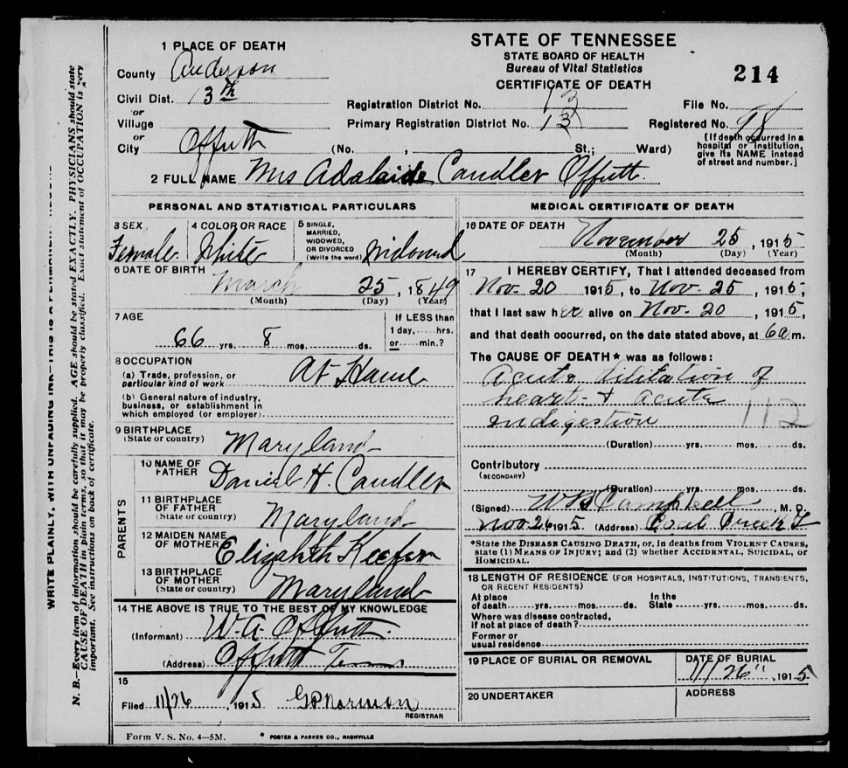 STATE OF TENNESSEE
STATE BOARD OF HEALTH
Bureau of Vital Statistics
CERTIFICATE OF DEATH
214
1 PLACE OF DEATH
County Anderson
Civil Dist. 13th
or
Village
or
City Offutt (No. , St.; Ward)
Registration District No. 13 File No.
Primary Registration District No. 13 Registered No. 98
[If death occurred in a hospital or institution, give its NAME instead of street and number.]
2 FULL NAME Mrs Adalaide Candler Offutt.
PERSONAL AND STATISTICAL PARTICULARS
3 SEX Female 4 COLOR OR RACE White 5 SINGLE, MARRIED, WIDOWED, OR DIVORCED (Write the word) Widowed
6 DATE OF BIRTH March 25, 1849
(Month) (Day) (Year)
7 AGE 66 yrs. 8 mos. ds. If LESS than 1 day, hrs. or min.?
8 OCCUPATION
(a) Trade, profession, or particular kind of work At Home
(b) General nature of industry, business, or establishment in which employed (or employer)
9 BIRTHPLACE
(State or country) Maryland
PARENTS
10 NAME OF FATHER Daniel H. Candler
11 BIRTHPLACE OF FATHER (State or country) Maryland
12 MAIDEN NAME OF MOTHER Elizabeth Keefer
13 BIRTHPLACE OF MOTHER (State or country) Maryland
14 THE ABOVE IS TRUE TO THE BEST OF MY KNOWLEDGE
(Informant) W.A. Offutt.
(Address) Offutt Tenn
15
Filed 11/26, 1915 G P Norman
REGISTRAR
MEDICAL CERTIFICATE OF DEATH
16 DATE OF DEATH November 25, 1915
(Month) (Day) (Year)
17 I HEREBY CERTIFY, That I attended deceased from
Nov. 20 1915, to Nov. 25, 1915,
that I last saw her alive on Nov. 20, 1915,
and that death occurred, on the date stated above, at 6 a m.
The CAUSE OF DEATH* was as follows:
Acute dilitation of
heart - & acute
indigestion 112
(Duration) yrs. mos. ds.
Contributory
(SECONDARY)
(Duration) yrs. mos. ds.
(Signed) W B Campbell, M. D.
Nov 26 1915 (Address) Coal Creek T
*State the DISEASE CAUSING DEATH, or, in deaths from VIOLENT CAUSES, state (1) MEANS OF INJURY; and (2) whether ACCIDENTAL, SUICIDAL, or HOMICIDAL.
18 LENGTH OF RESIDENCE (FOR HOSPITALS, INSTITUTIONS, TRANSIENTS, OR RECENT RESIDENTS)
At place of death yrs. mos. ds. In the State yrs. mos. ds.
Where was disease contracted, if not at place of death?
Former or usual residence
19 PLACE OF BURIAL OR REMOVAL DATE OF BURIAL
11/26", 1915
20 UNDERTAKER ADDRESS
Form V. S. No. 4—5M. * FOSTER & PARKES CO., NASHVILLE
WRITE PLAINLY, WITH UNFADING INK—THIS IS A PERMANENT RECORD
N. B.—Every item of information should be carefully supplied. AGE should be stated EXACTLY. PHYSICIANS should state
CAUSE OF DEATH in plain terms, so that it may be properly classified. Exact statement of OCCUPATION is very
important. See instructions on back of certificate.